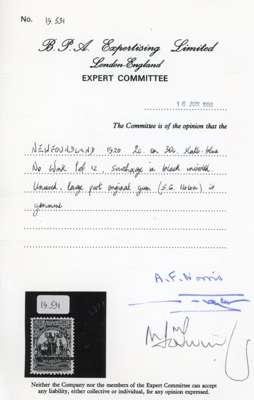 No. 19.591
B. P. A. Expertising Limited
London-England
EXPERT COMMITTEE
The Committee is of the opinion that the
NEWFOUNDLAND 1920 2c. on 30c. slate-blue
No Wmk Perf 12, Surcharge in black inverted
Unused, large part original gum (S.G. ) is
genuine
A.F. Norris
19.591
Neither the Company nor the members of the Expert Committee can accept
any liability, either collective or individual, for any opinion expressed.